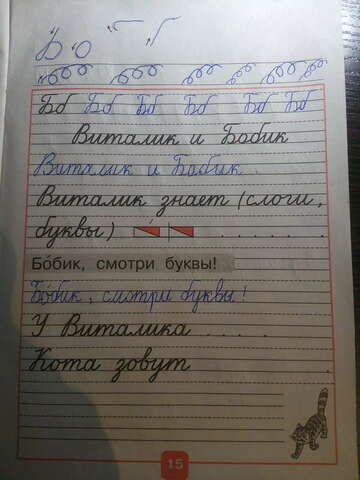 Б о
Бб Бб Бб Бб Бб Бб
Виталик и Бобик
Виталик и Бобик.
Виталик знает (слоги,
буквы)
Бо́бик, смотри буквы!
Бо́бик, смотри буквы!
У Виталика . . .
Кота зовут .
15